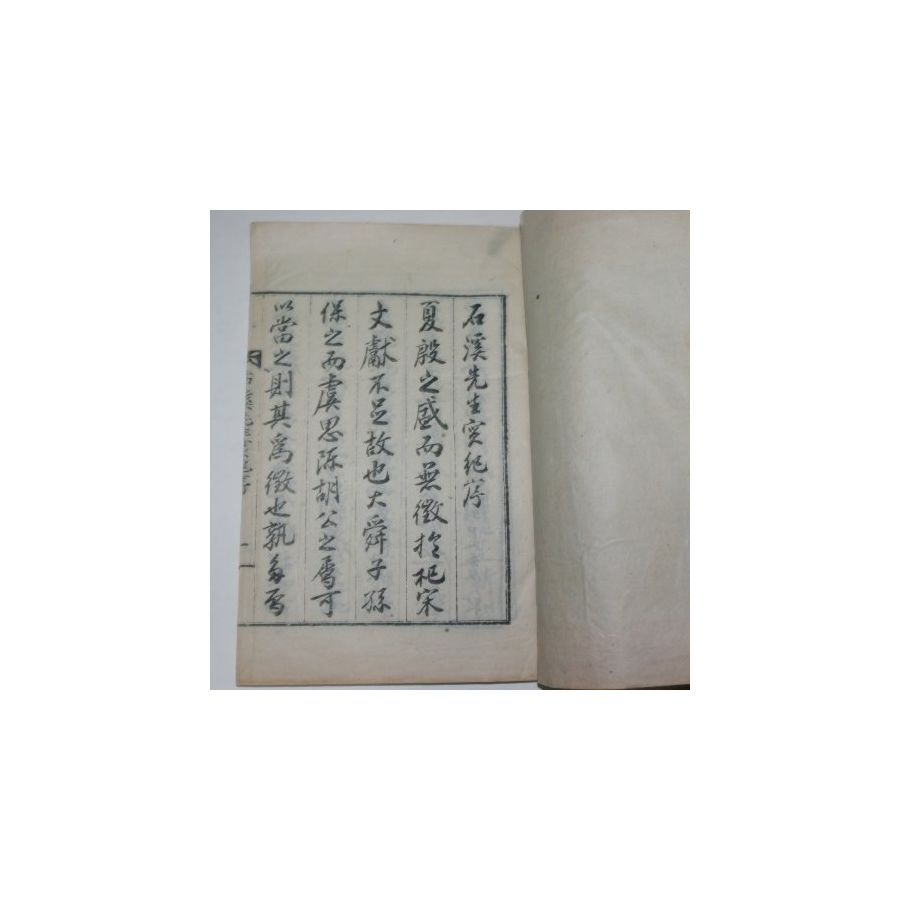 石溪先生實紀序
夏殷之盛而無徵於杞宋
文獻不足故也大舜子孫
保之而虞思陈胡公之屬可
以當之則其爲徵也孰多焉
石溪先生實紀序 一